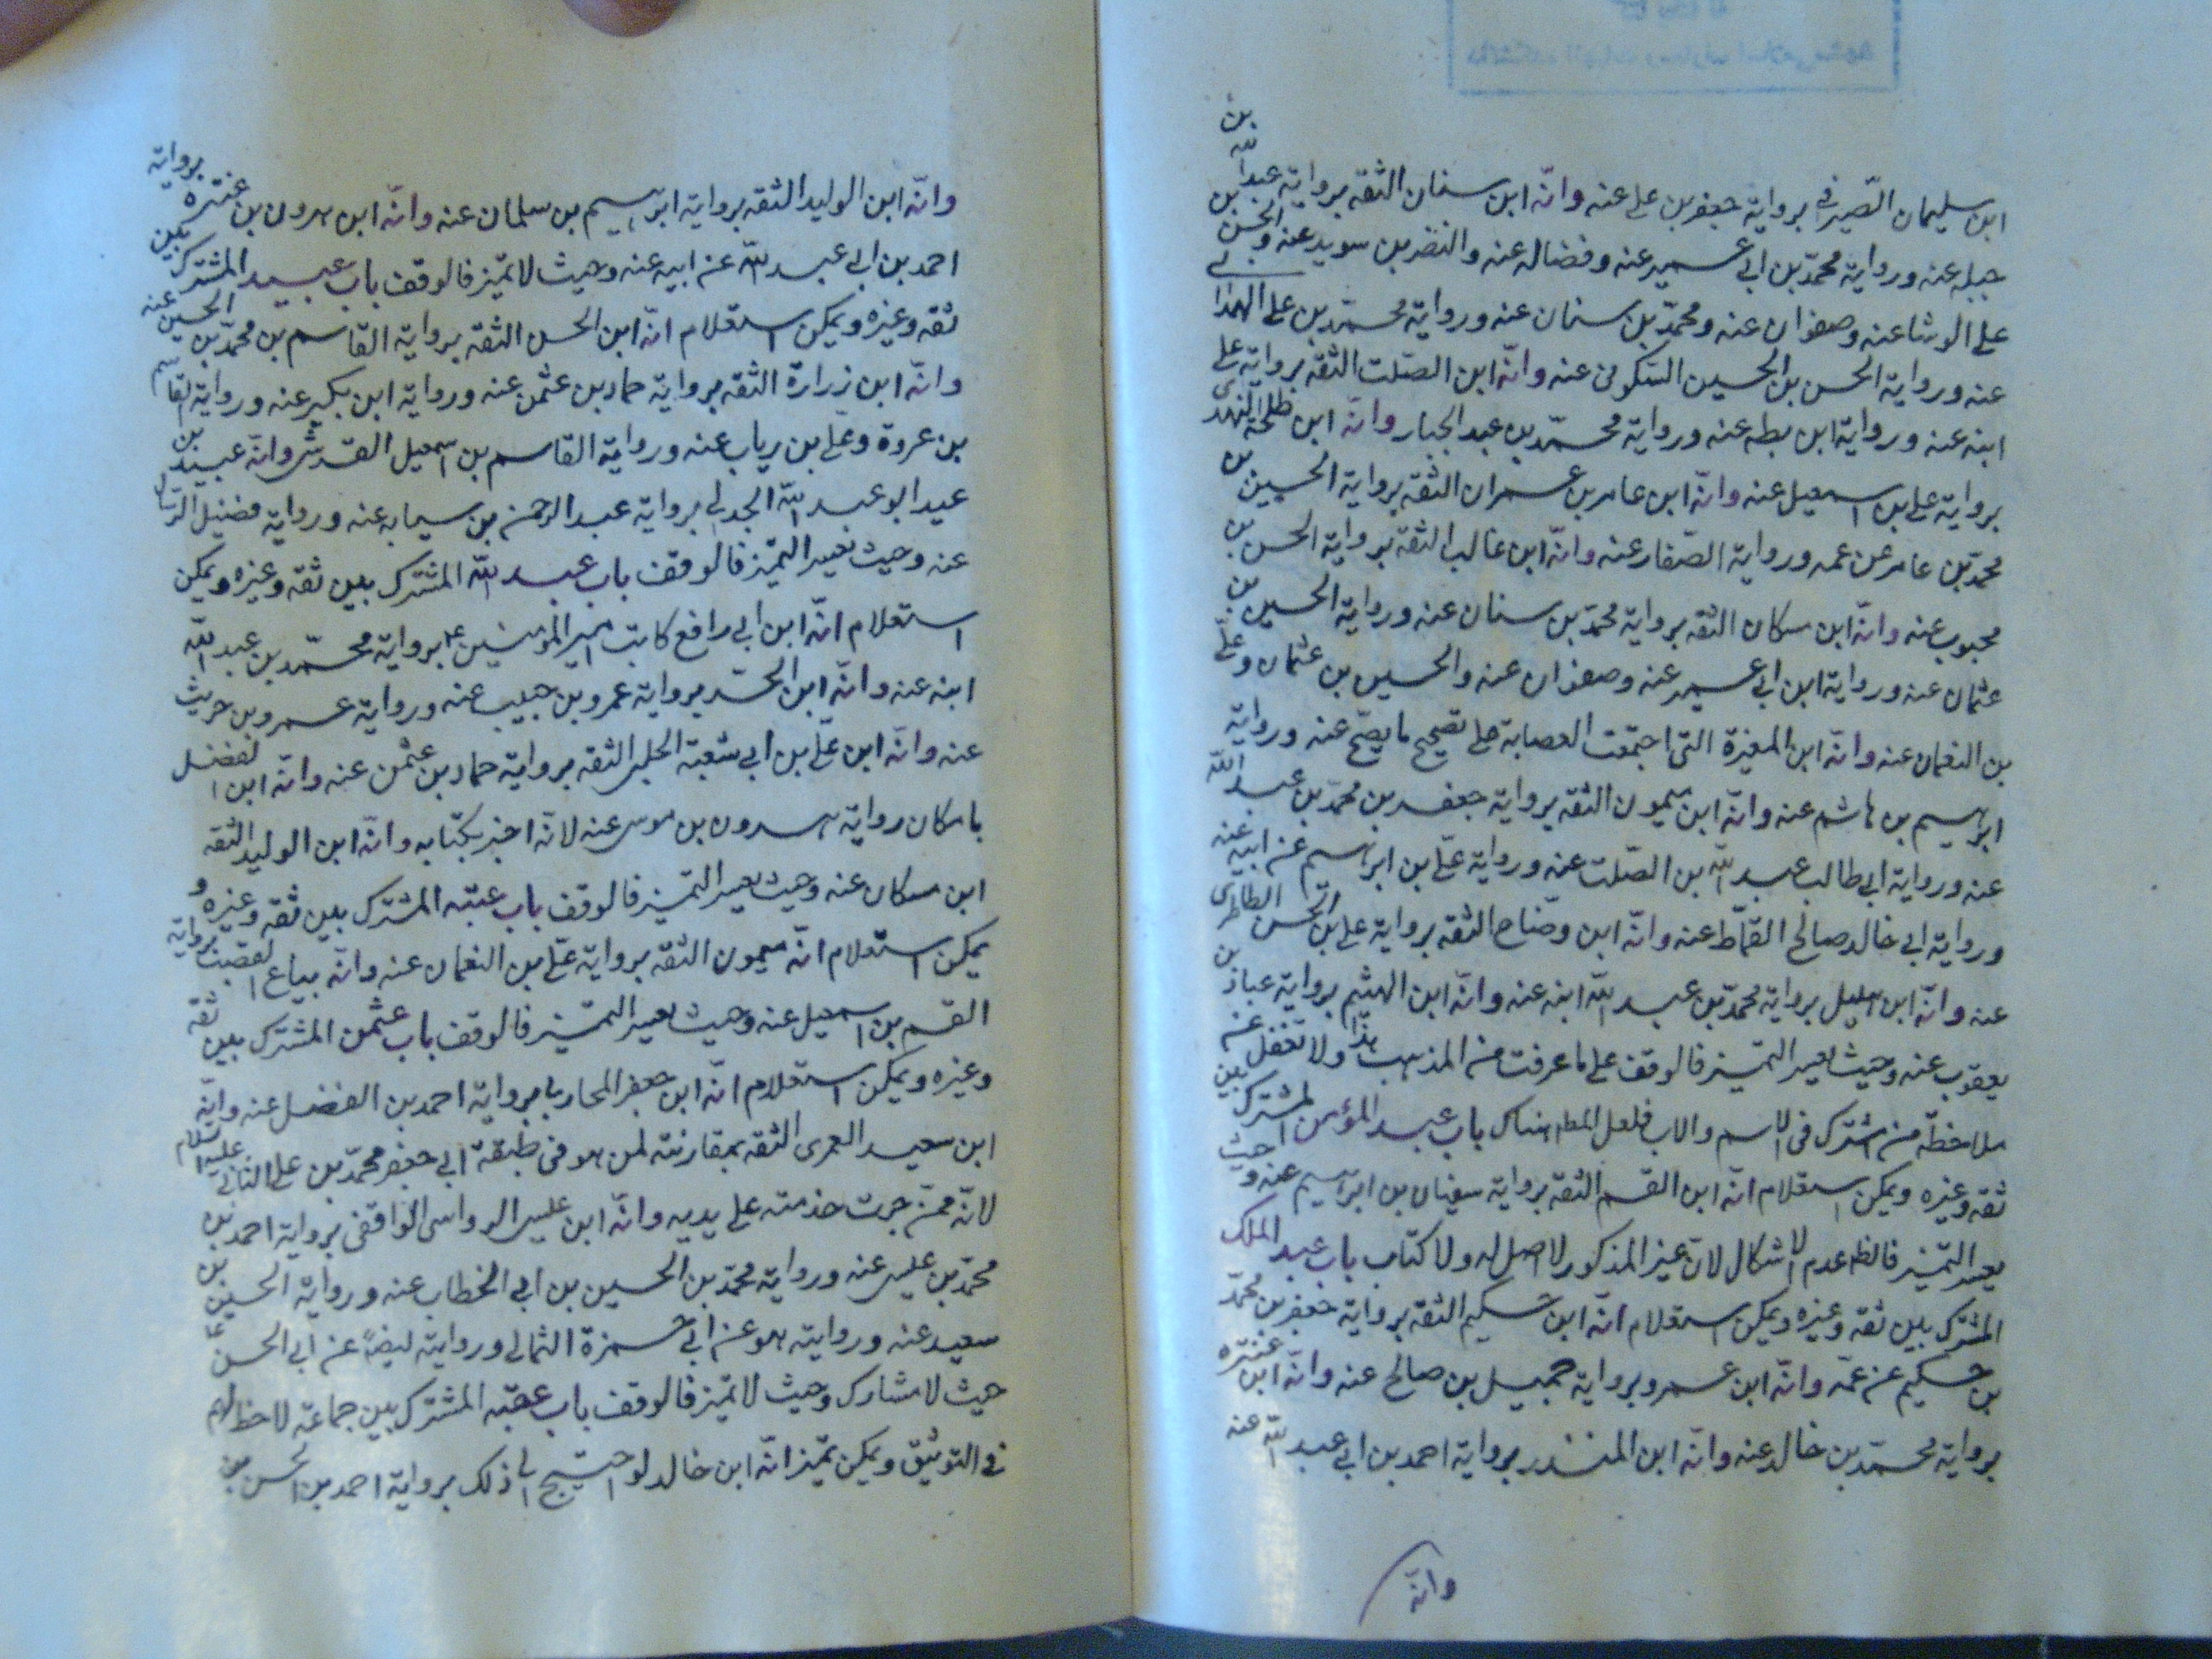 ابن سليمان الصيرفي برواية جعفر بن على عنه وانّه ابن سنان الثقه برواية عبد الله بن
جبله عنه ورواية محمّد بن ابي عمير عنه وفضاله عنه والنضر بن سويد عنه والحسن بن
على الوشا عنه وصفوان عنه ومحمّد بن سنان عنه ورواية محمّد بن على الهمداني
عنه ورواية الحسن بن الحسين السكونى عنه وانّه ابن الصّلت الثقه برواية على
ابنه عنه ورواية ابن بطه عنه ورواية محمّد بن عبد الجبار وانّه ابن طلحة النهدى
برواية على بن اسمعيل عنه وانّه ابن عامر بن عمران الثقه برواية الحسين بن
محمّد بن عامر عن عمه ورواية الصّفار عنه وانّه ابن غالب الثقه برواية الحسن بن
محبوب عنه وانّه ابن مسكان الثقه برواية محمّد بن سنان عنه ورواية الحسين بن
عثمان عنه ورواية ابن ابي عمير عنه وصفوان عنه والحسين بن عثمان وعلى
بن النعمان عنه وانّه ابن المغيرة التى اجتمعت العصابة على تصحيح ما يصحّ عنه ورواية
ابرهيم بن هاشم عنه وانّه ابن ميمون الثقه برواية جعفر بن محمّد بن عبيد الله
عنه ورواية ابي طالب عبد الله بن الصّلت عنه ورواية علىّ بن ابرهيم عن ابيه عنه
ورواية ابي خالد صالح القمّاط عنه وانّه ابن وضّاح الثقه برواية على بن الحسن الطاطرى
عنه وانّه ابن هليل برواية محمّد بن عبد الله ابنه عنه وانّه ابن الهيثم برواية عباد بن
يعقوب عنه وحيث يعسر التميّز فالوقف على ما عرفت من المذهب هذا ولا تغفل عن
ملاحظة من اشترك في الاسم والاب فلعل المط هناك باب عبد المؤمن المشترك بين
ثقه وغيره ويمكن استعلام انّه ابن القسم الثقه برواية سفيان بن ابرهيم عنه وحيث
يعسر التميّز فالظ عدم الاشكال لانّ غير المذكور لا اصل له ولا كتاب باب عبد الملك
المشترك بين ثقه وغيره ويمكن استعلام انّه ابن حكيم الثقه برواية جعفر بن محمّد
بن حكيم عن عمّه وانّه ابن عمرو برواية جميل بن صالح عنه وانّه ابن عنتره
برواية محمّد بن خالد عنه وانّه ابن المنذر برواية احمد بن ابي عبد الله عنه
وانّه
وانّه ابن الوليد الثقه برواية ابرهيم بن سلمان عنه وانّه ابن هرون بن عنتره برواية
احمد بن ابي عبد الله عن ابيه عنه وحيث لا تميّز فالوقف باب عبيد المشترك بين
ثقه وغيره ويمكن استعلام انّه ابن الحسن الثقه برواية القاسم بن محمّد بن الحسين عنه
وانّه ابن زرارة الثقه برواية حماد بن عثمن عنه ورواية ابن بكير عنه ورواية القاسم
بن عروة وعلى بن رياب عنه ورواية القاسم بن اسمعيل القرشى وانّه عبيد بن
عبد ابو عبد الله الجدلي برواية عبد الرحمن بن سيابه عنه ورواية فضيل الرسان
عنه وحيث يعسر التميّز فالوقف باب عبيد الله المشترك بين ثقه وغيره ويمكن
استعلام انّه ابن ابي رافع كاتب امير المؤمنين ع برواية محمّد بن عبيد الله
ابنه عنه وانّه ابن الحر برواية عمرو بن حبيب عنه ورواية عمرو بن حريث
عنه وانّه ابن علىّ بن ابي شعبة الحلبى الثقه برواية حماد بن عثمن عنه وانّه ابن الفضل
بامكان رواية هرون بن موسى عنه لانّه اخبر بكتابه وانّه ابن الوليد الثقه
ابن مسكان عنه وحيث يعسر التميّز فالوقف باب عتبه المشترك بين ثقه وغيره و
يمكن استعلام انّه ميمون الثقه برواية علىّ بن النعمان عنه وانّه بياع القصب برواية
القسم بن اسمعيل عنه وحيث يعسر التميّز فالوقف باب عثمن المشترك بين ثقه
وغيره ويمكن استعلام انّه ابن جعفر المحاربا برواية احمد بن الفضل عنه وانّه
ابن سعيد العمرى الثقه بمقارنته لمن هو فى طبقة ابي جعفر محمّد بن على الثانى عليه السلام
لانّه ممّن جرت خدمته على يديه وانّه ابن عيسى الرواسى الواقفى برواية احمد بن
محمّد بن عيسى عنه ورواية محمّد بن الحسين بن ابي الخطاب عنه ورواية الحسين بن
سعيد عنه وروايته هو عن ابي حمزة الثمالي وروايته ايضاً عن ابي الحسن ع
حيث لا مشارك وحيث لا تميّز فالوقف باب عقبه المشترك بين جماعة لاحظ لهم
في التوثيق ويمكن تميّز انّه ابن خالد لو احتيج الى ذلك برواية احمد بن الحسن بن